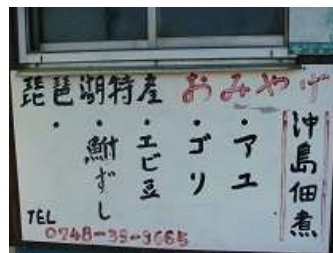 琵琶湖特産 おみやげ
沖島佃煮
・アユ
・ゴリ
・エビ豆
・鮒ずし
・
TEL
0748-33-9665